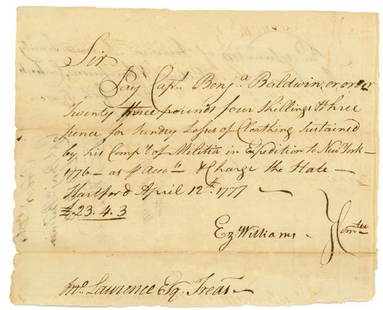 Sir
Pay Capt. Benj.a Baldwin, or order
Twenty three pounds four Shillings & three
pence for Sundry Losses of Cloathing Sustained
by his Comp.y of Militia in Expedition to New York
1776 as pr Acco.tt & Charge the State
Hartford April 12th 1777
£23.4.3
Ez Williams Com.tee
Mr. Laurence Esq. Treas.r